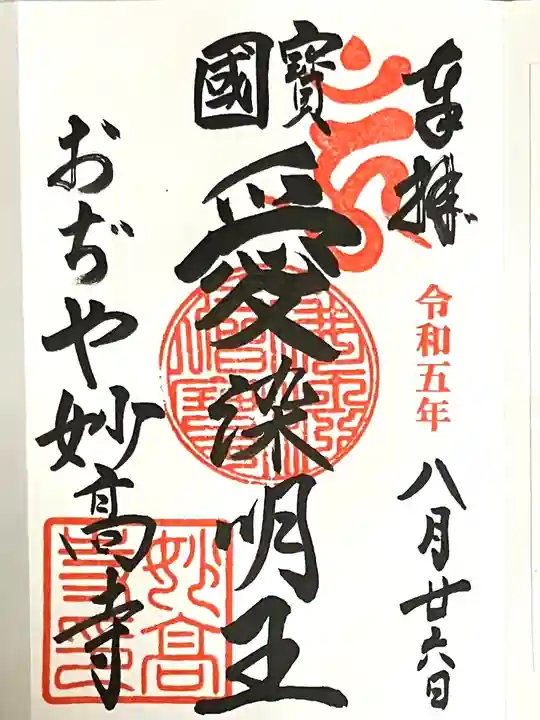 奉拝
令和五年
八月廿六日
國寶
愛染明王
おぢや妙高寺
妙高
寺印